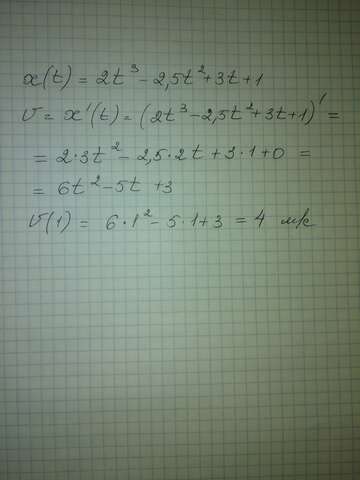 x(t) = 2t³ - 2,5t² + 3t + 1
v = x'(t) = (2t³ - 2,5t² + 3t + 1)' =
= 2·3t² - 2,5·2t + 3·1 + 0 =
= 6t² - 5t + 3
v(1) = 6·1² - 5·1 + 3 = 4 м/с